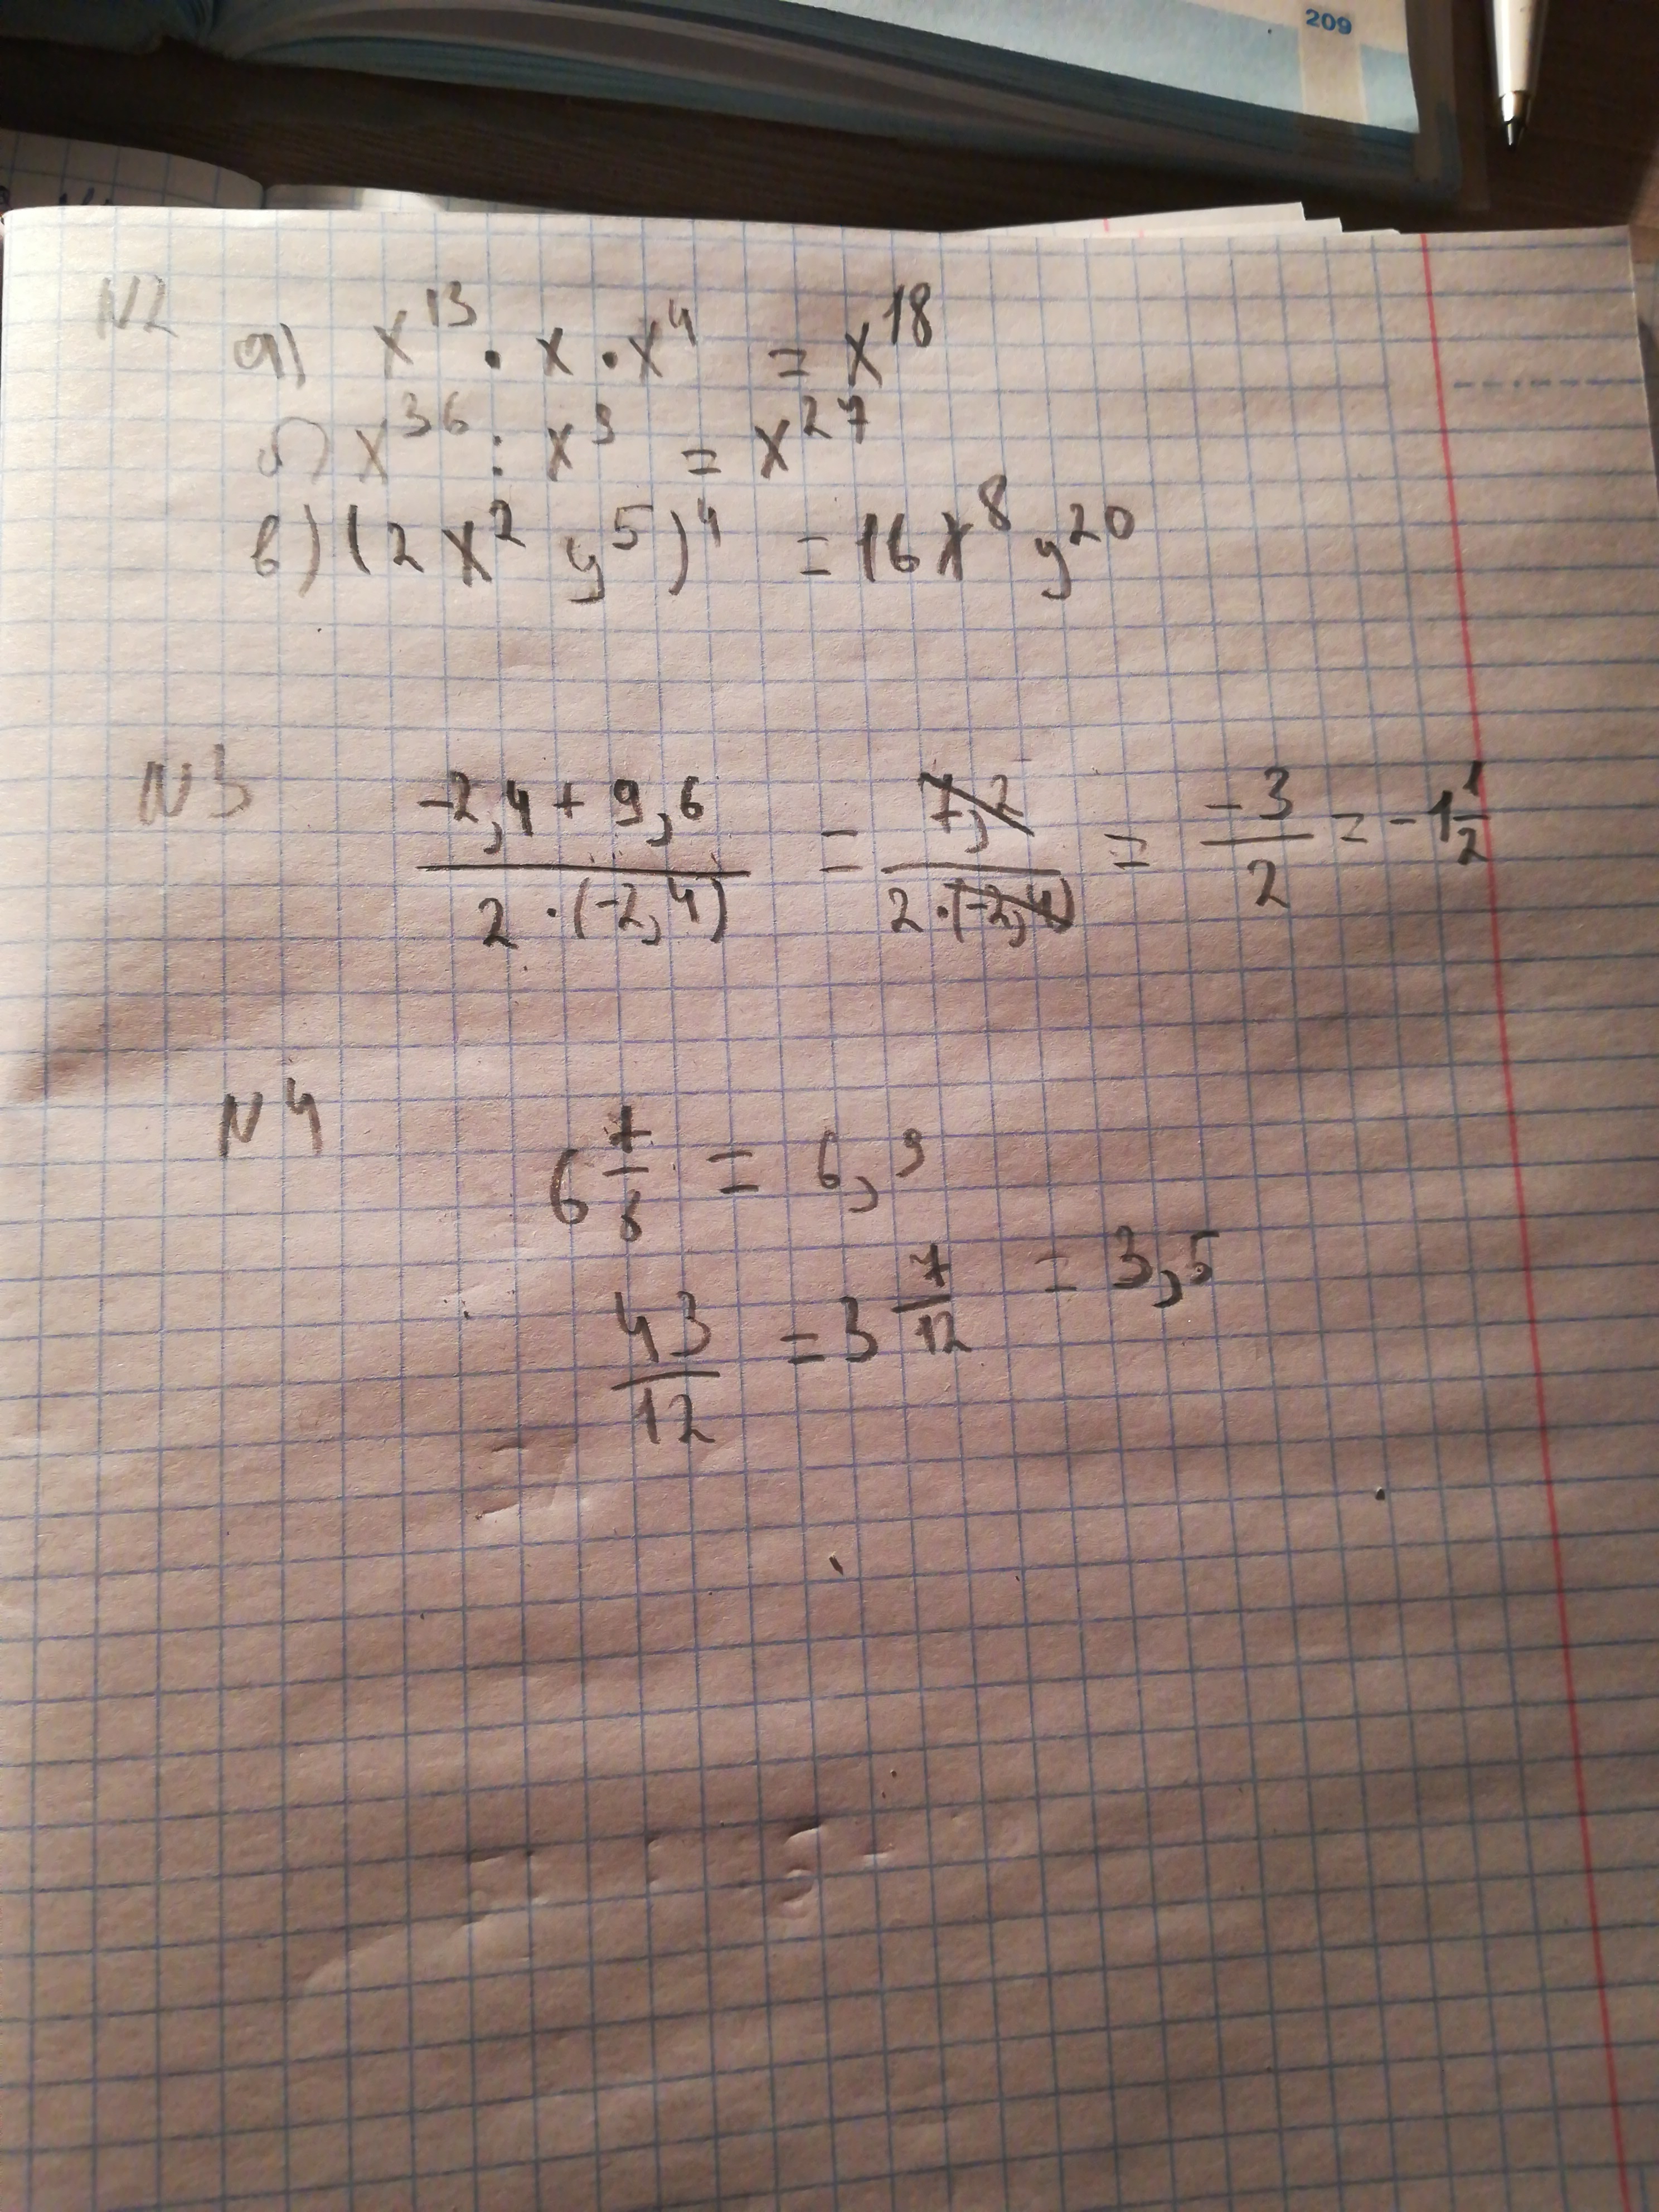 209
N2
а) x¹³ · x · x⁴ = x¹⁸
б) x³⁶ : x⁹ = x²⁷
в) (2x² y⁵)⁴ = 16x⁸ y²⁰
N3 (-2,4 + 9,6)/(2 · (-2,4)) = 7,2/(2 · (-2,4)) = -3/2 = -1 1/2
N4
6 7/8 = 6,9
43/12 = 3 7/12 = 3,5